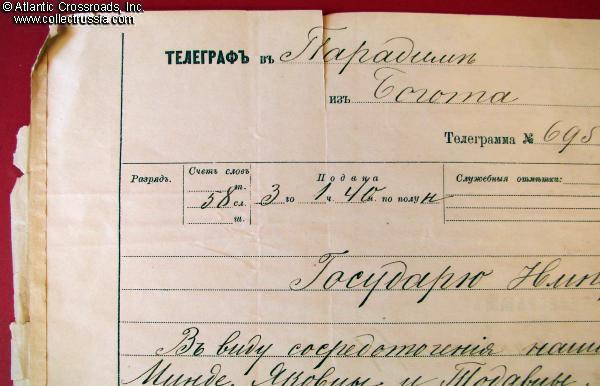 © Atlantic Crossroads, Inc.
www.collectrussia.com
ТЕЛЕГРАФЪ въ Парадимѣ
изъ Богота
Телеграмма № 695
Разрядъ.
Счетъ словъ
т.
58 сл.
ш.
Подача
3 го 1 ч. 40 м. по полун
Служебныя отмѣтки:
Государю Импе
Въ виду сосредоточенія наши